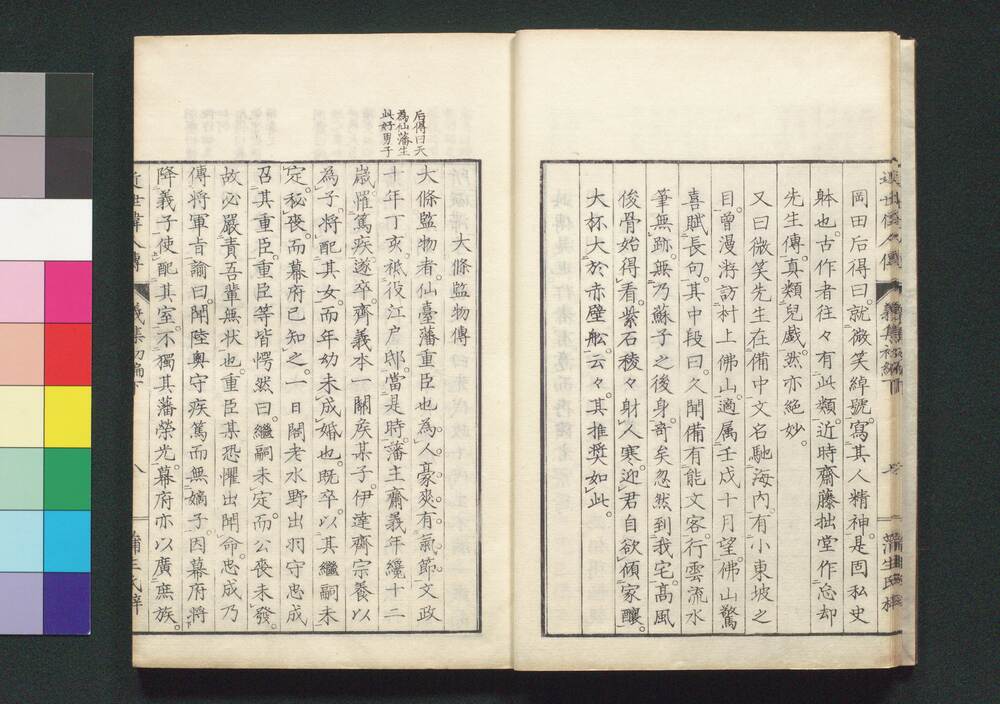 岡田后得曰。就微笑綽號。寫其人精神。是固私史
躰也。古作者往々有此類。近時齋藤拙堂作忘却
先生傳。真類兒戲。然亦絶妙。
又曰微笑先生在備中文名馳海内。有小東坡之
目。曾漫游訪村上佛山。適属壬戌十月望佛山驚
喜賦長句。其中段曰。久聞備有能文客。行雲流水
筆無跡。無乃蘇子之後身。奇矣忽然到我宅。高風
俊骨始得看。紫石稜々射人寒。迎君自欲傾家釀。
大杯大於赤壁舩。云々。其推奨如此。
后得曰天
為仙藩生
此好男子
大條監物傳
大條監物者。仙臺藩重臣也。為人豪爽。有氣節。文政
十年丁亥。祗役江户邸。當是時。藩主齋義年纔十二
歳。罹篤疾。遂卒。齊義本一關疾某子。伊達齊宗養以
為子。將配其女。而年幼未成婚也。既卒。以其繼嗣未
定。秘喪。而幕府已知之。一日閣老水野出羽守忠成
召其重臣。重臣等皆愕然曰。繼嗣未定。而公喪未發。
故必嚴責吾輩無状也。重臣某恐懼出聞命。忠成乃
傳將軍旨諭曰。聞陸奥守疾篤而無嫡子。因幕府將
降義子使配其室。不獨其藩榮光。幕府亦以廣庶族。
近世偉人傳
義集初編下
八
蒲生氏梓